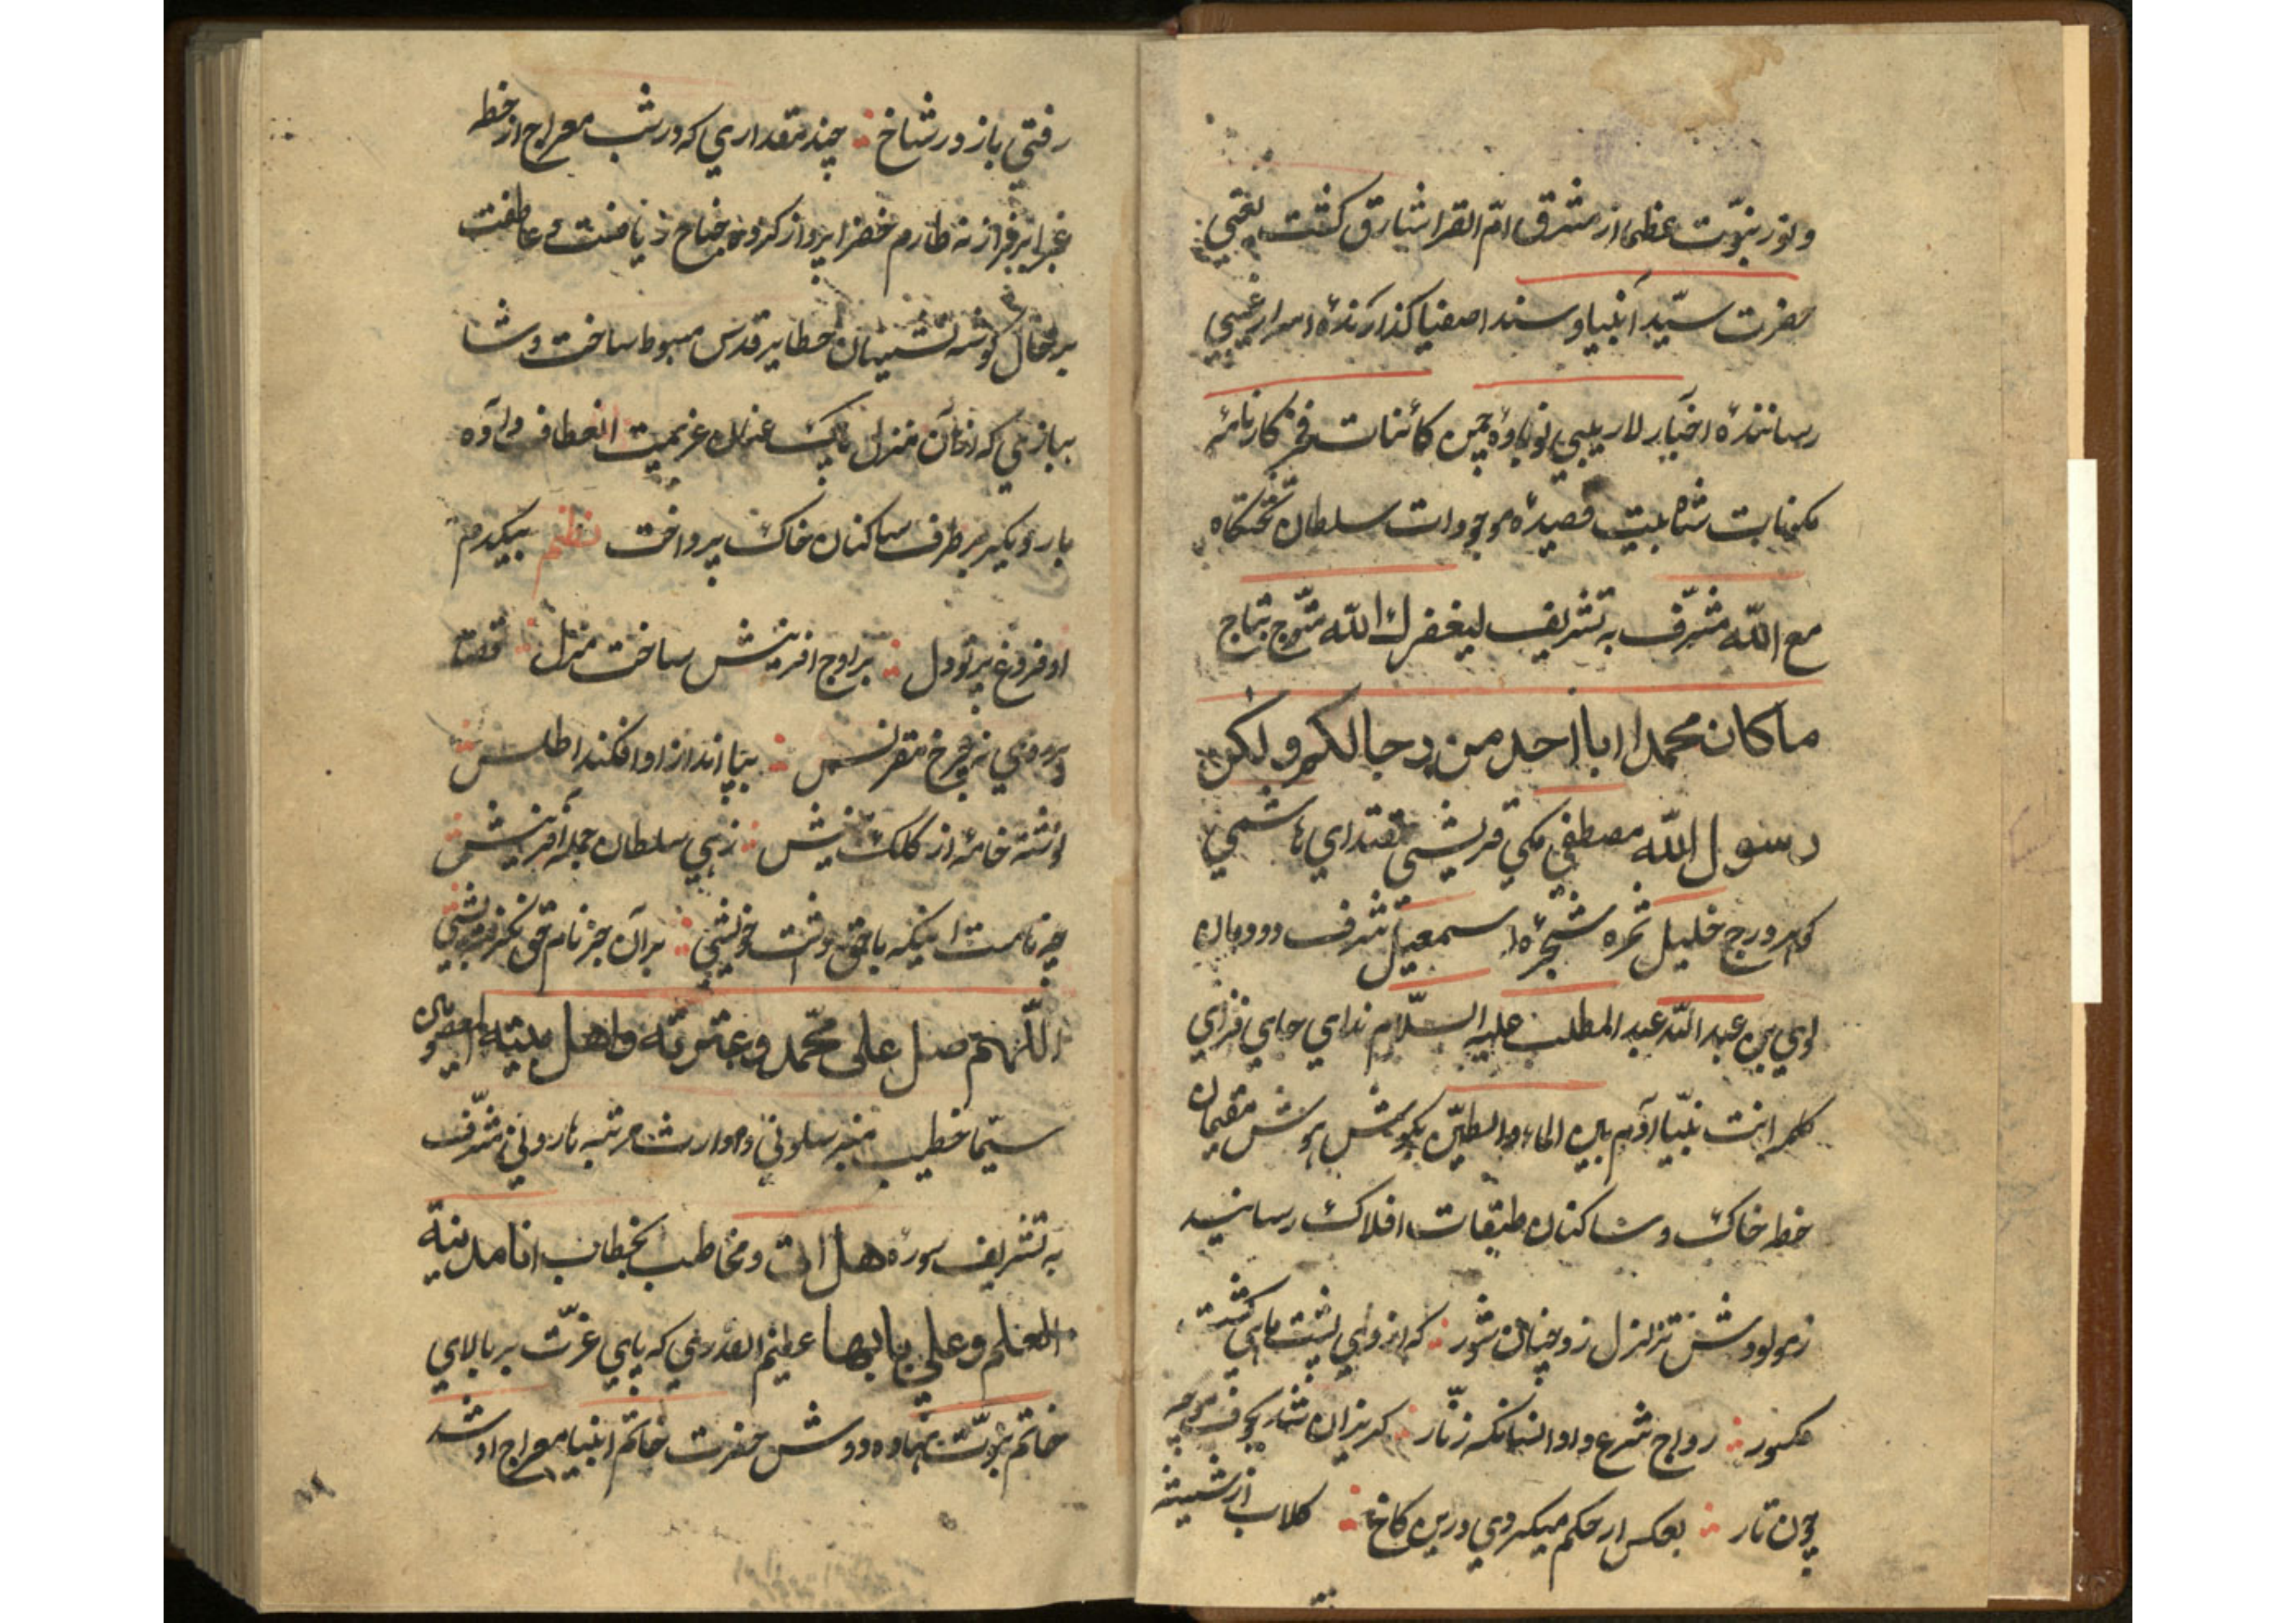 ونور نبوّت عظمی از مشرق امّ القرا شارق کشت یعنی
حضرت سیّد انبیا و سند اصفیا کذارندهٔ اسرار غیبی
رسانندهٔ اخبار لاریبی نوباوهٔ چمن کائنات فخر کارنامهٔ
مکونات شاه بیت قصیدهٔ موجودات سلطان تختکاه
مع اللّه مشرّف به تشریف لیغفر لك اللّه متوّج بتاج
ما کان محمد ابا احد من رجالکم ولکن
رسول اللّه مصطفی مکی قریشی مقتدای هاشمی
کوهر درج خلیل ثمرهٔ شجرهٔ اسمعیل شرف دودمان
لوی بن عبد اللّه عبد المطلب علیه السّلام ندای جای فزای
کلمه انت نبیّا آدم بین الماء والطین بکوش هوش مقیمان
خطه خاک و ساکنان طبقات افلاک رسانید
ز مولودش تزلزل زد چنان شور که از وی پشت
مکسور رواج شرع داد انسانکه زنّار کریزان شد
چون تار بعکس ار حکم میکردی درین کاخ کلاب از شیشه
رفتی باز در شاخ چند مقداری که در شب معراج از خطه
غبرا بر فراز نه طارم خضرا پرواز کرد و جناح ریاضت و عاطفت
بر حال کوشه نشینان خطایر قدس مبسوط ساخت و شا
بازی که از آن منزل پاک عنان عزیمت انعطاف داده
بار دیکر بر طرف ساکنان خاک پرداخت نظم بیکدم
او فروغ پرتو دل بر اوج افرینش ساخت منزل قضا
بر روی نه چرخ مقرنس بپا انداز او افکند اطلس
نوشته خامهٔ از کلک بینش زهی سلطان جمله آفرینش
چه نامست اینکه با حق داشت خویشی بر آن جز نام حق نکرفت پیشی
اللّهم صل علی محمّد وعترته واهل بیته المعصومین
سیّما خطیب منبر سلونی و وارث مرتبه هارونی مشرّف
به تشریف سوره هل اتی و مخاطب بخطاب انا مدینة
العلم وعلی بابها عظیم القدری که پای عزّت بر بالای
خاتم نبوّت نهاده و دوش حضرت خاتم انبیا معراج او شد